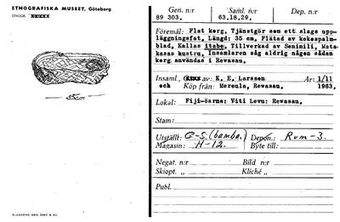 ETNOGRAFISKA MUSEET, Göteborg
35cm
Gen. n:r
89 303.
Saml. n:r
63.18.29.
Dep. n:r
Föremål: Flat korg. Tjänstgör som ett slags upp-
läggningsfat. Längd: 35 cm. Flätad av kokospalm-
blad. Kallas itabe. Tillverkad av Senimili, Mata-
kasas hustru. Insamlaren såg aldrig någon sådan
korg användas i Revasau.
Insaml. av: K. E. Larsson År: 1/11
och Köp från: Mereula, Revasau. 1963.
Lokal: Fiji-öarna: Viti Levu: Revasau.
Stam:
Utställt: Depon.: Rum-3.
Magasin: H-12. Byte till:
Negat. n:r Bild n:r
Skiopt. „ Kliché „
Publ.